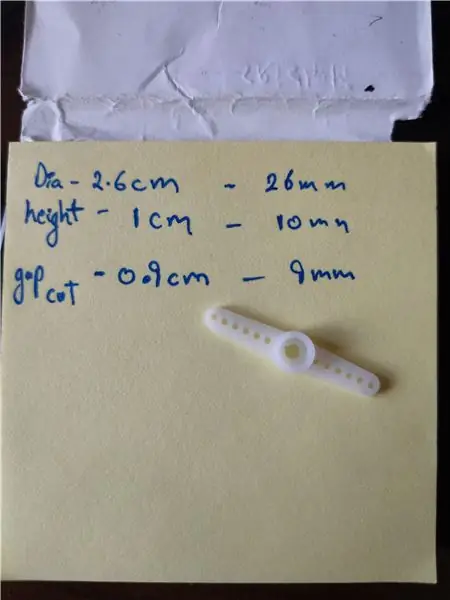 Dia - 2.6cm - 26mm
height - 1cm - 10mm
gap cut - 0.9cm - 9mm